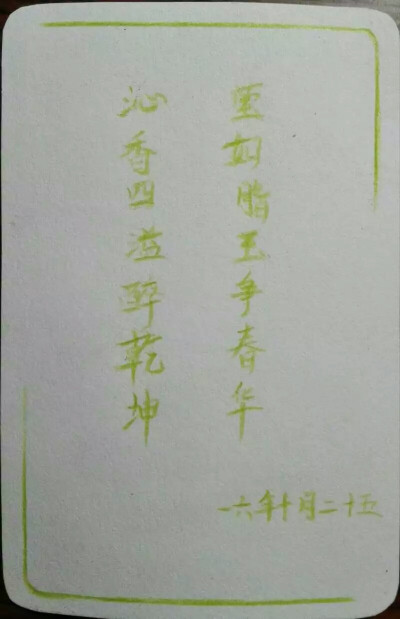 垩如脂玉争春华
沁香四溢醉乾坤
一六年十月二十五